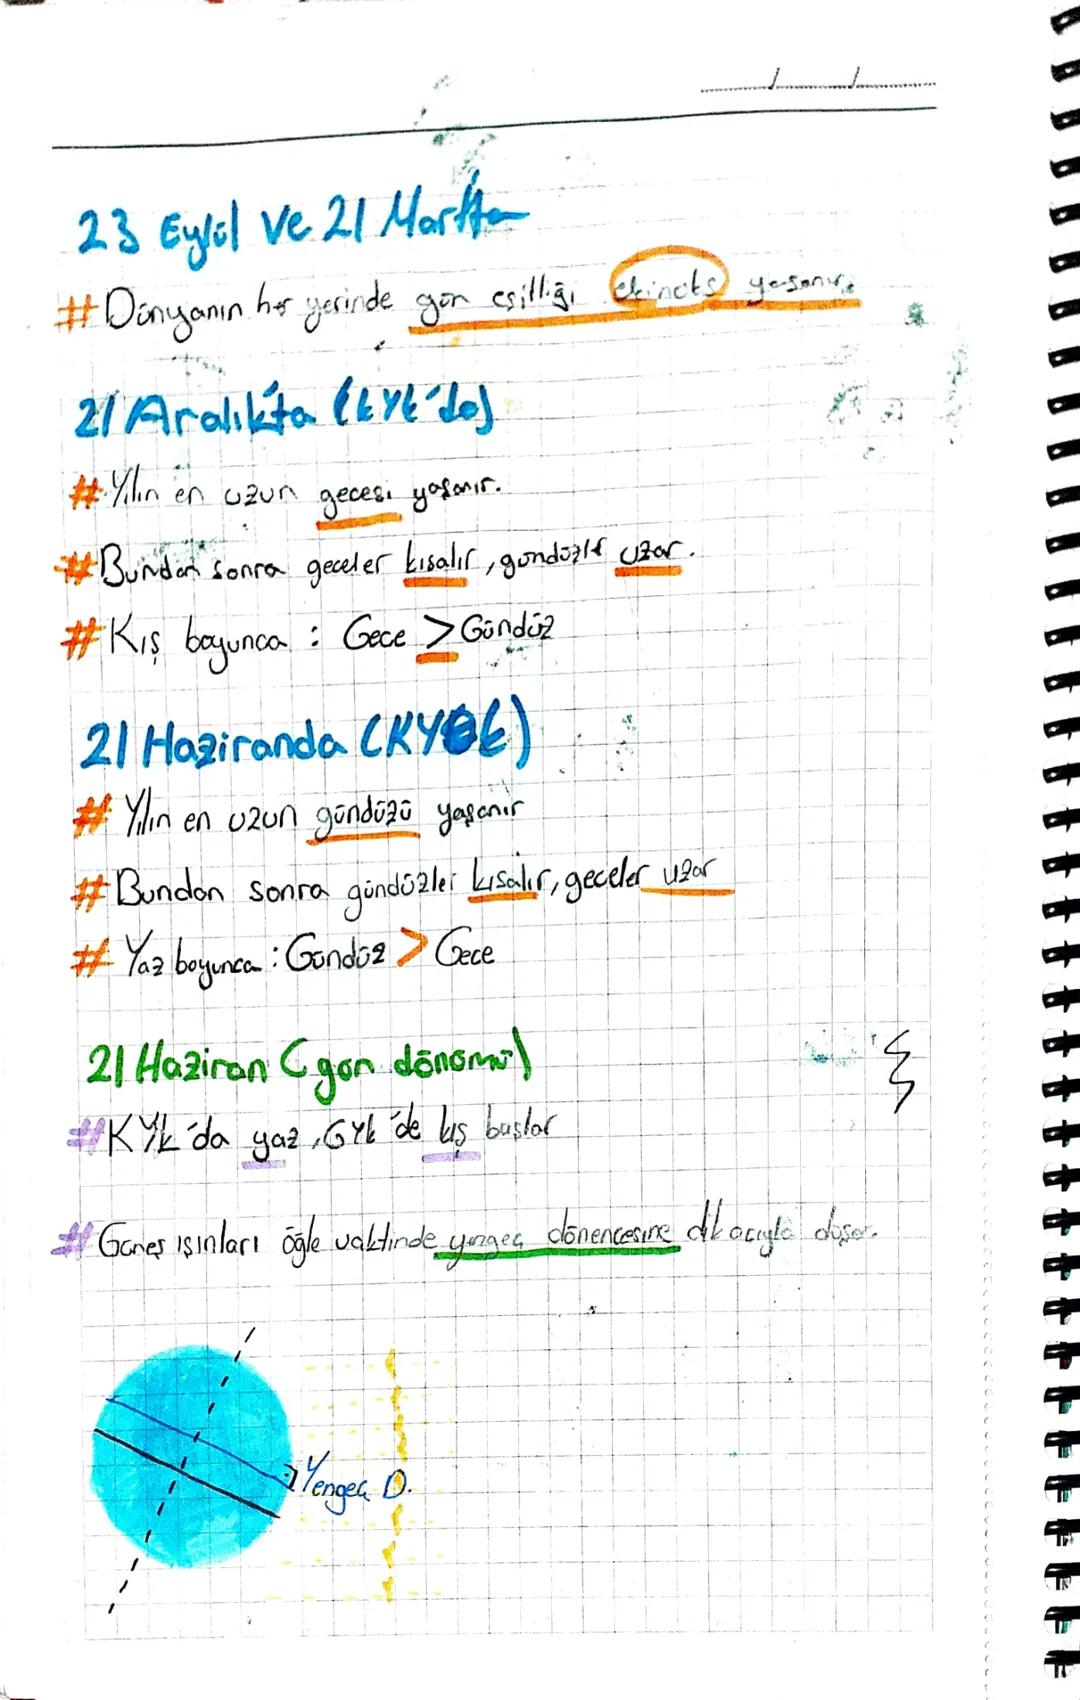 23 Eylül ve 21 Martta
# Dünyanın her yerinde gün eşitliği ekinoks yaşanır.
21 Aralıkta (KYK'da)
# Yılın en uzun gecesi yaşanır.
# Bundan sonra geceler kısalır, gündüzler uzar.
# Kış boyunca : Gece > Gündüz
21 Haziranda (KYK)
# Yılın en uzun gündüzü yaşanır
# Bundan sonra gündüzler kısalır, geceler uzar
# Yaz boyunca : Gündüz > Gece
21 Haziran (gün dönümü)
# KYK'da yaz, GYK'de kış başlar
# Güneş ışınları öğle vaktinde yengeç dönencesine dik açıyla düşer.
Yengeç D.